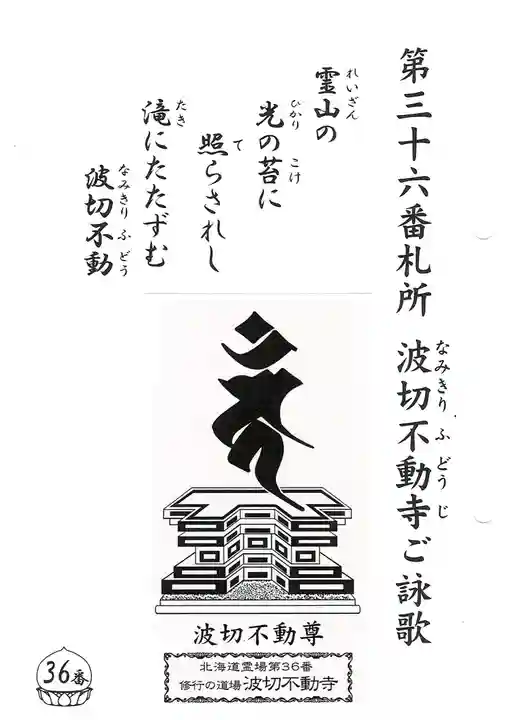 第三十六番札所 波切不動寺ご詠歌
なみきり ふ どう じ
霊山の
れいざん
光の苔に
ひかり こけ
照らされし
て
滝にたたずむ
たき
波切不動
なみきり ふ どう
波切不動尊
北海道霊場第36番
修行の道場 波切不動寺
36番